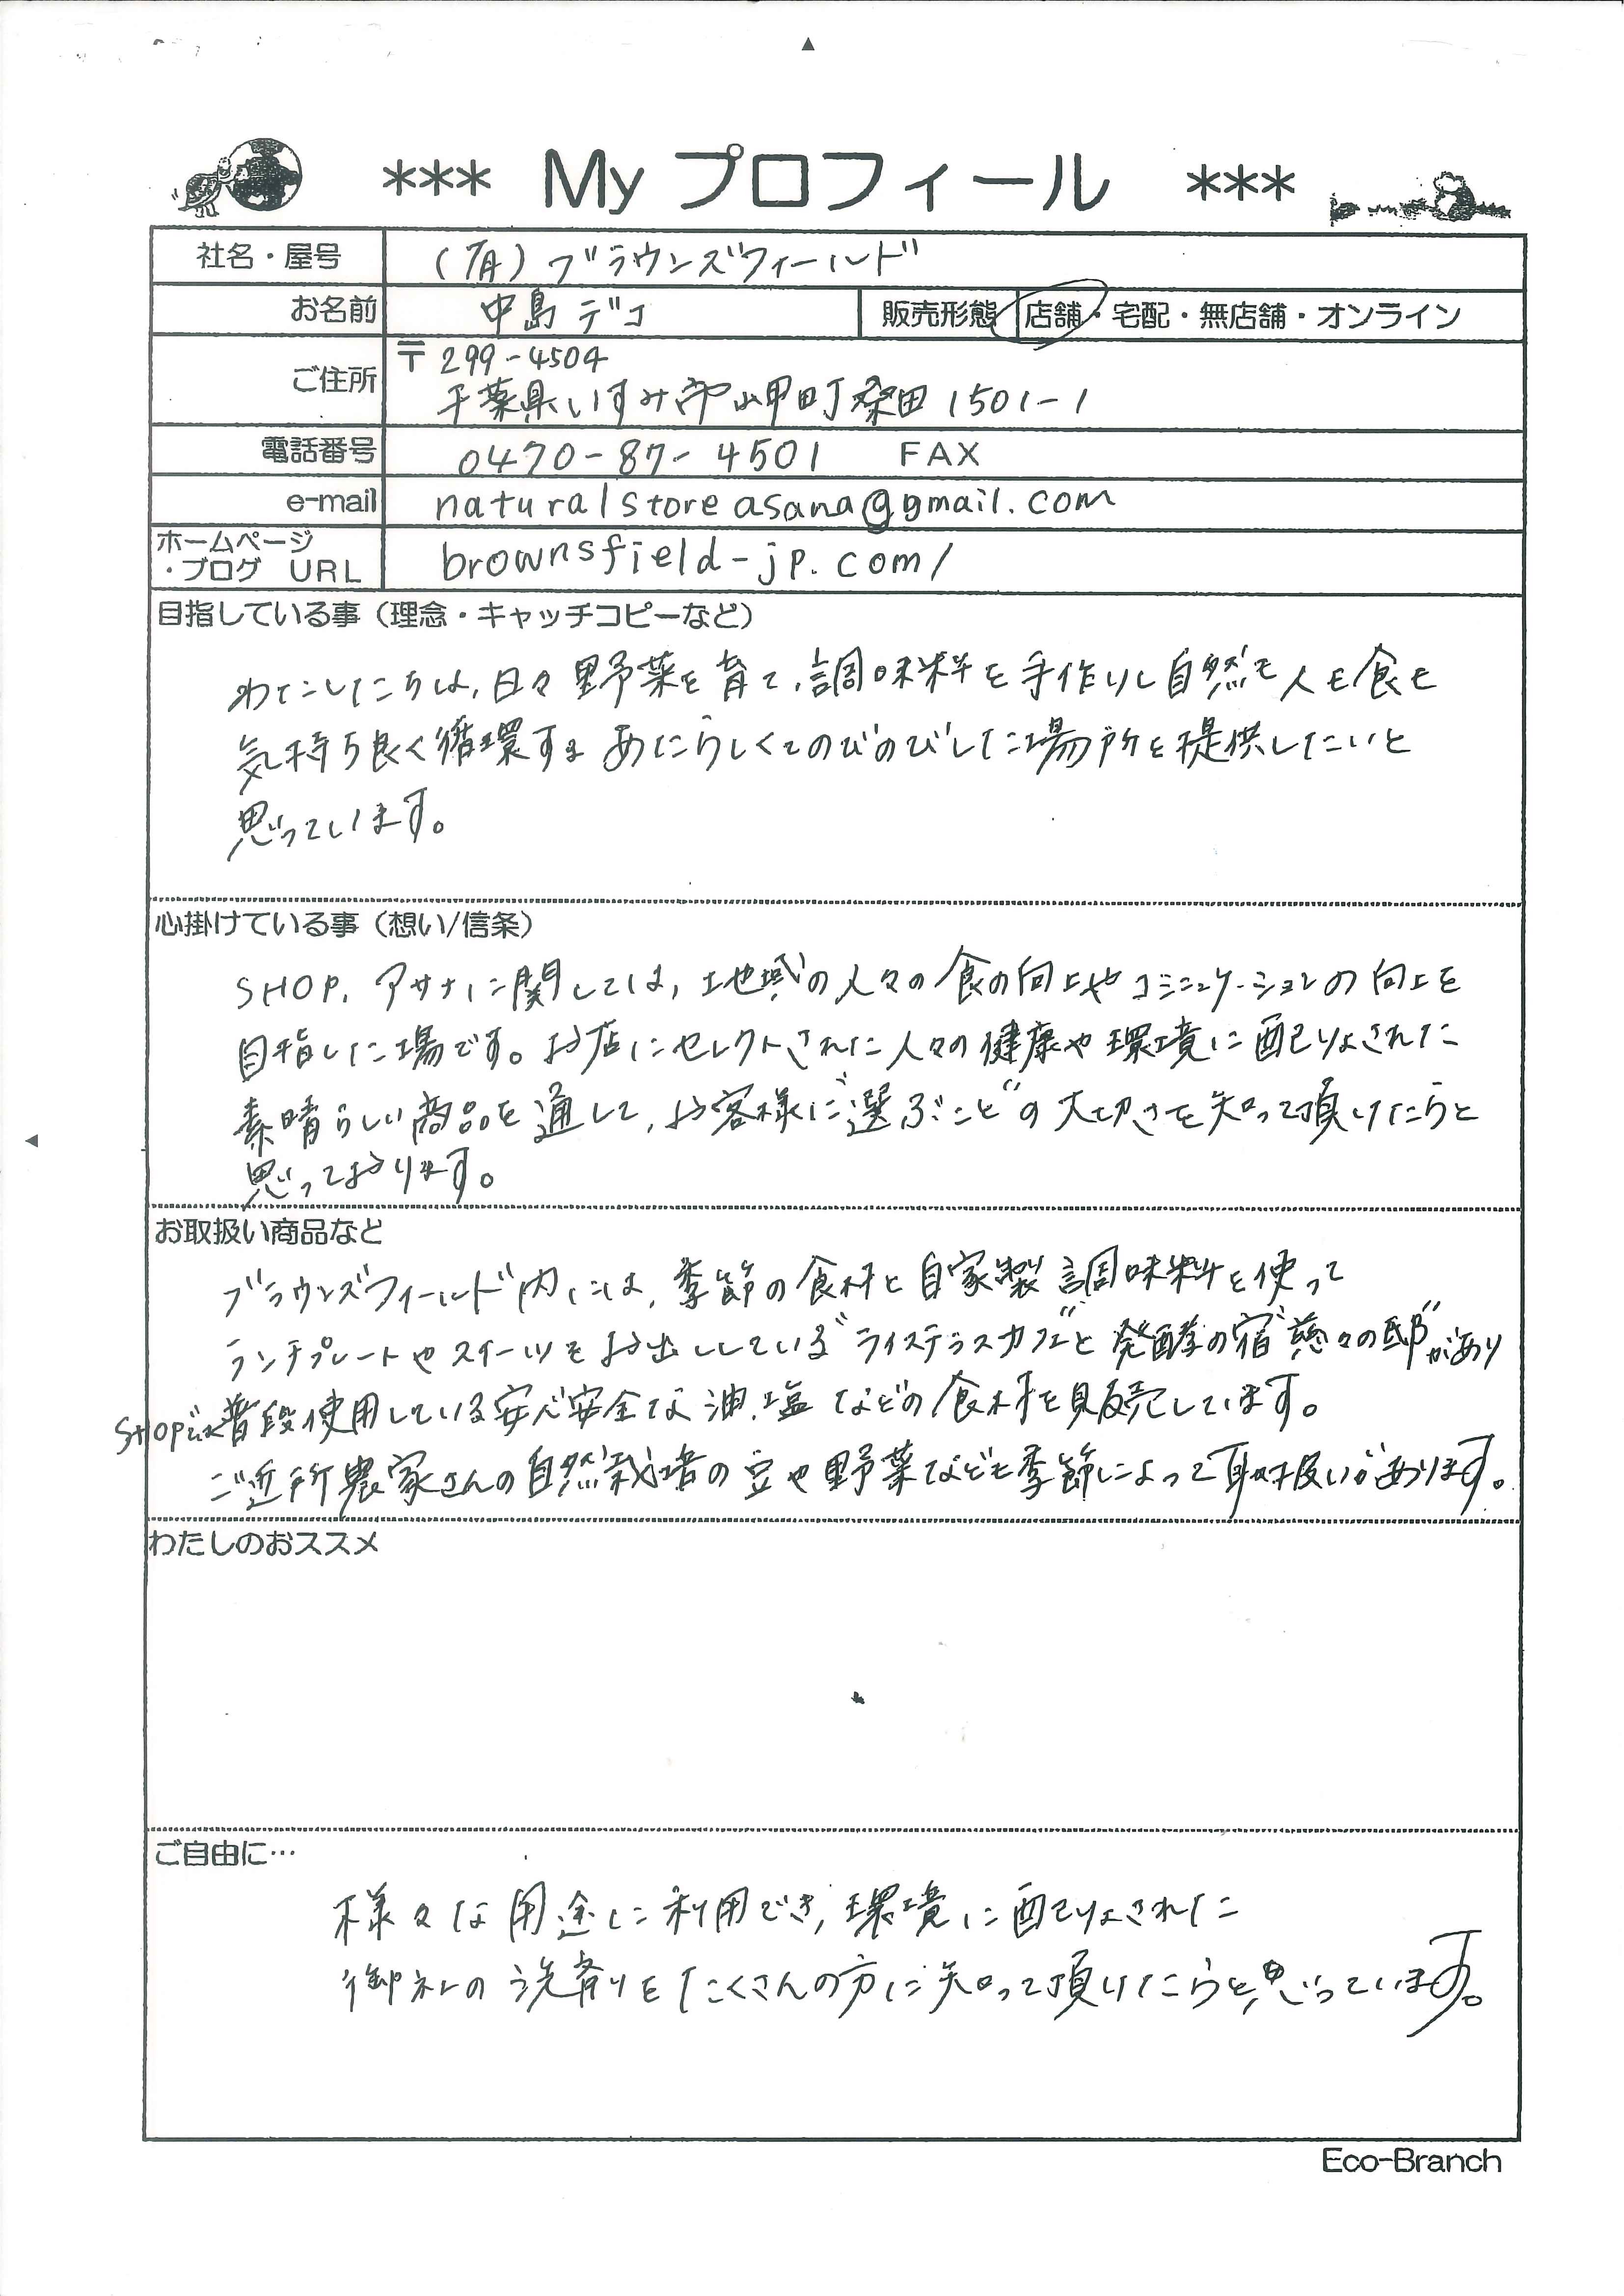 *** My プロフィール ***
社名・屋号 (有)ブラウンズフィールド
お名前 中島デコ 販売形態 店舗・宅配・無店舗・オンライン
ご住所 〒299-4504
千葉県いすみ市岬町桑田1501-1
電話番号 0470-87-4501 FAX
e-mail naturalstoreasana@gmail.com
ホームページ
・ブログ URL brownsfield-jp.com/
目指している事(理念・キャッチコピーなど)
わたしたちは、日々野菜を育て、調味料を手作りし自然も人も食も
気持ち良く循環する あたらしくてのびのびした場所を提供したいと
思っています。
心掛けている事(想い/信条)
SHOP. アサナに関しては、地域の人々の食の向上やコミニュケーションの向上を
目指した場です。お店にセレクトされた人々の健康や環境に配りょされた
素晴らしい商品を通して、お客様に“選ぶこと”の大切さを知って頂けたらと
思っております。
お取扱い商品など
ブラウンズフィールド内には、季節の食材と自家製調味料を使って
ランチプレートやスイーツをお出ししている“ライステラスカフェ”と発酵の宿“慈々の邸”があり
SHOPでは普段使用している安心安全な油、塩などの食材を販売しています。
ご近所農家さんの自然栽培の豆や野菜なども季節によって取扱いがあります。
わたしのおススメ
ご自由に…
様々な用途に利用でき、環境に配りょされた
御社の洗剤をたくさんの方に知って頂けたらと思っています。
Eco-Branch